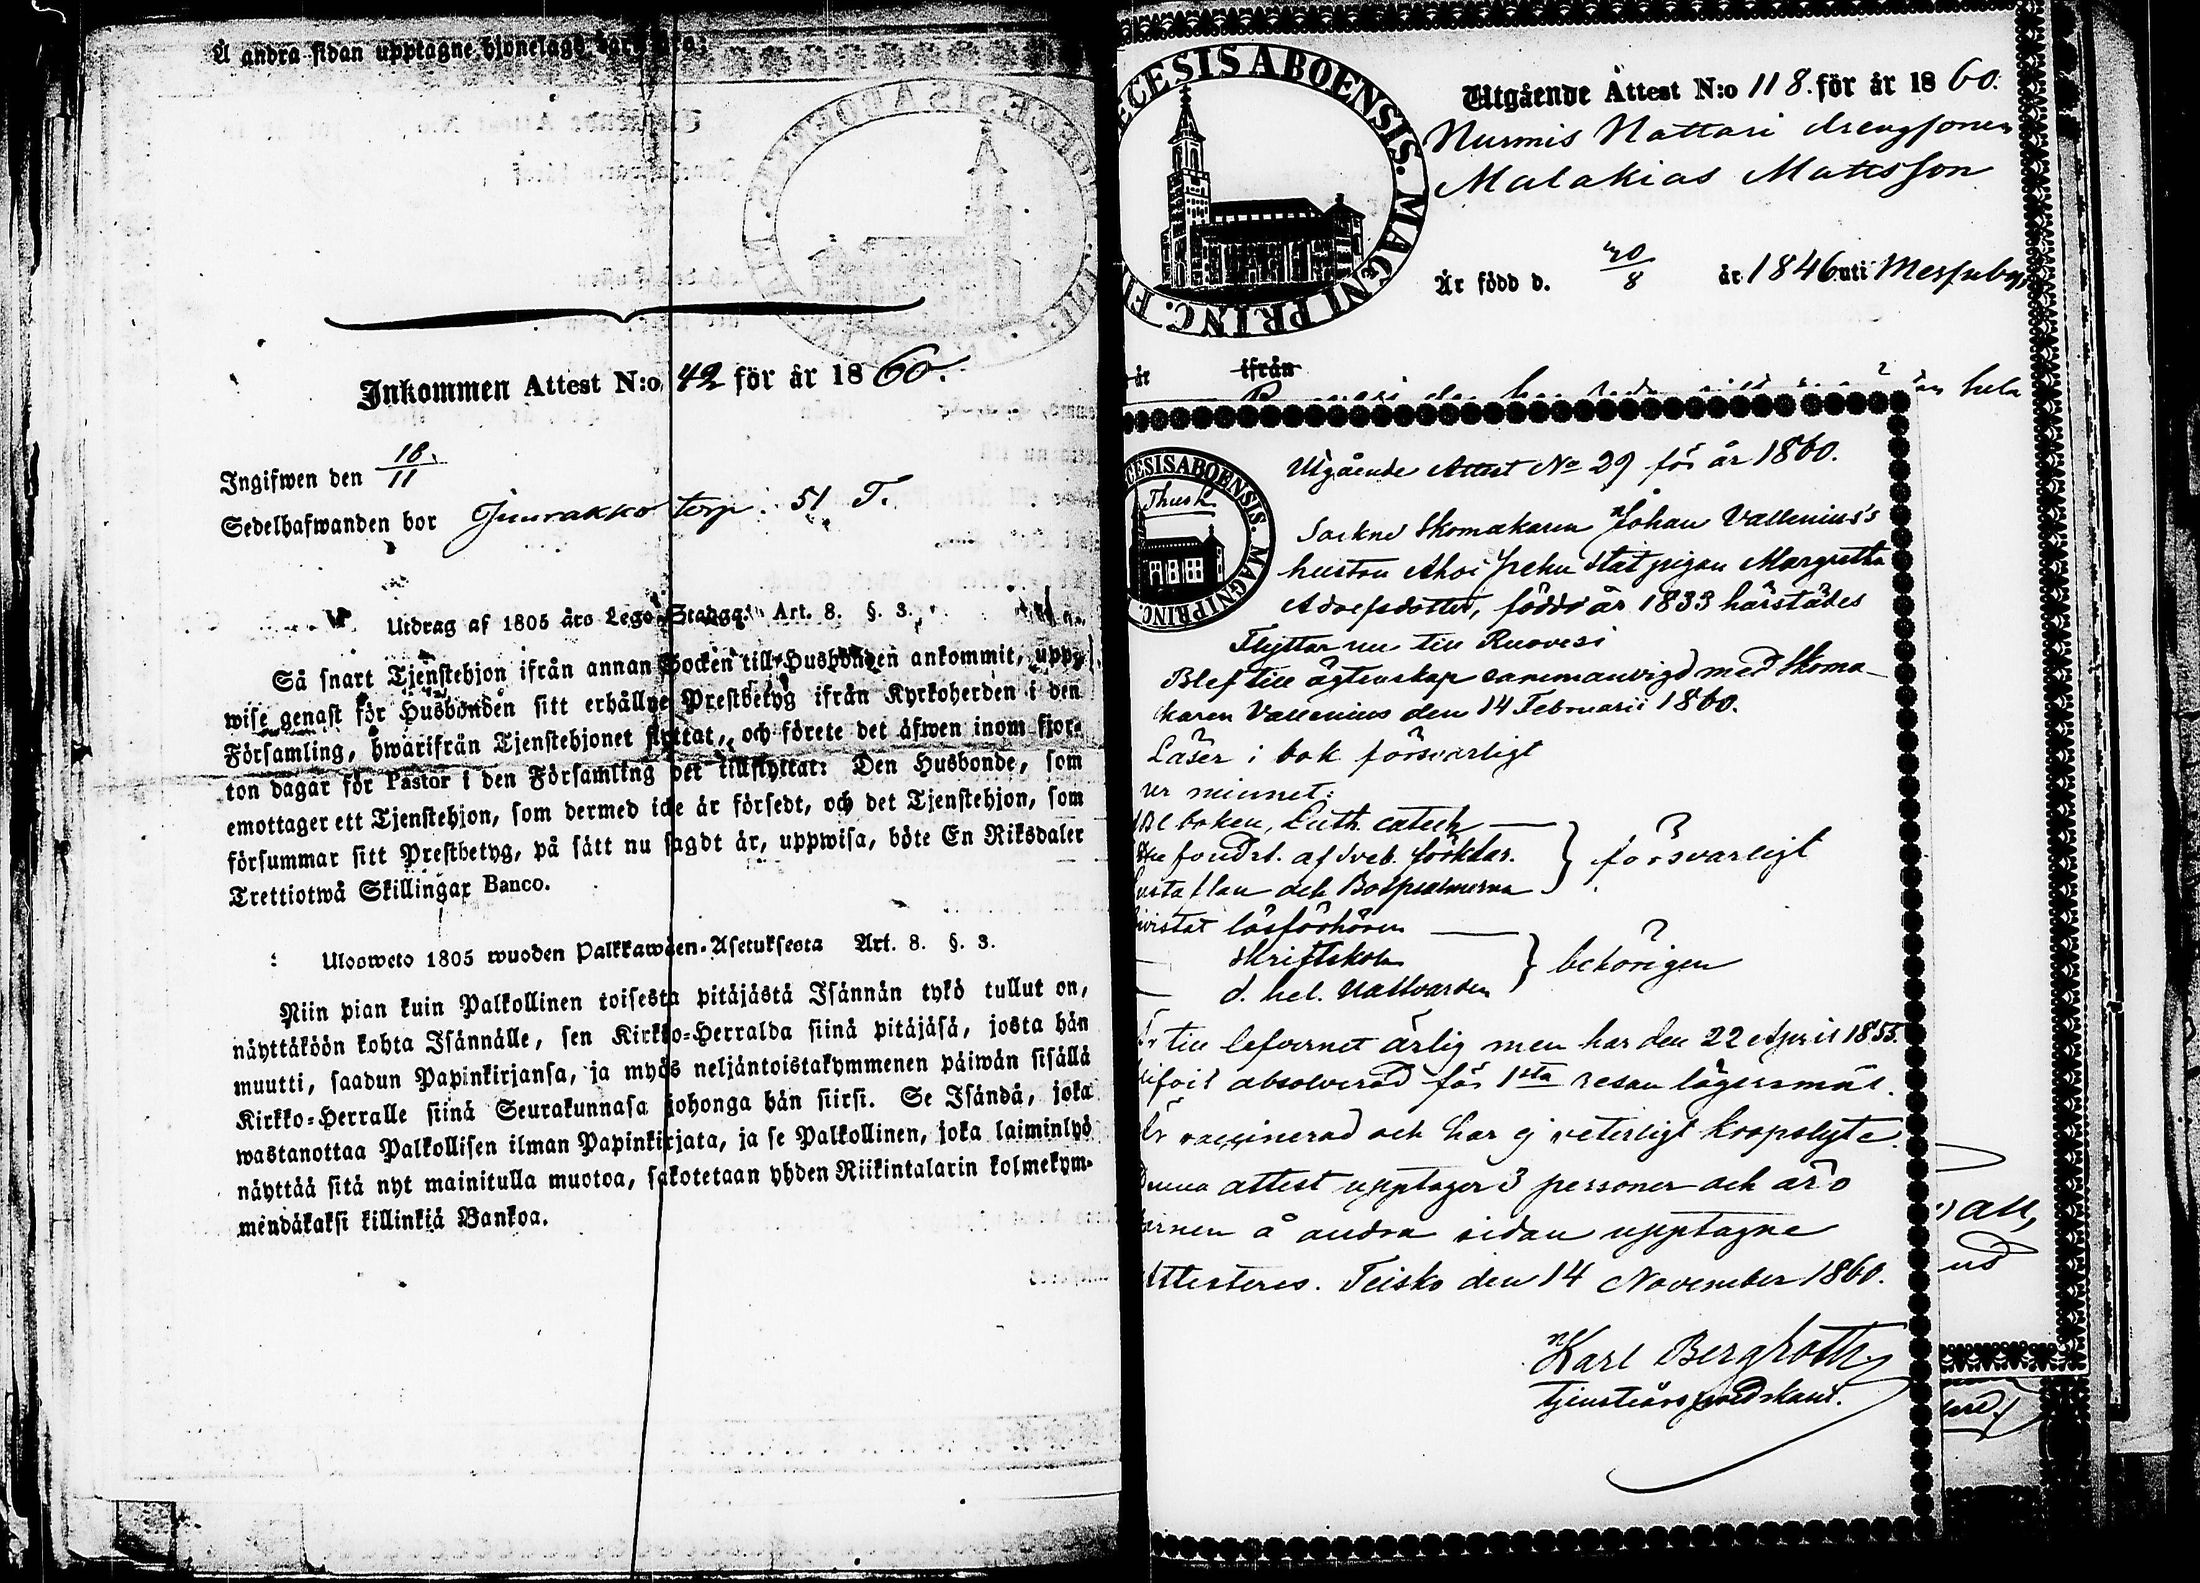 Å andra sidan upptagne hjonelags barn äro:
Inkommen Attest N:o 42 för år 1860.
Ingifwen den 18/11
Sedelhafwanden bor Juurakko torp. 51 T.
Utdrag af 1805 års Lego-Stadga: Art. 8. §. 3.
Så snart Tjenstehjon ifrån annan Socken till Husbonden ankommit, uppwise
genast för Husbonden sitt erhållne Prestbetyg ifrån Kyrkoherden i den
Församling, hwarifrån Tjenstehjonet flyttat, och förete det äfwen inom fjor-
ton dagar för Pastor i den Församling det tillflyttat: Den Husbonde, som
emottager ett Tjenstehjon, som dermed icke är försedt, och det Tjenstehjon, som
försummar sitt Prestbetyg, på sätt nu sagdt är, uppwisa, böte En Riksdaler
Trettiotwå Skillingar Banco.
Ulosweto 1805 wuoden Palkkawäen-Asetuksesta Art. 8. §. 3.
Niin pian kuin Palkollinen toisesta pitäjästä Isännän tykö tullut on,
näyttäköön kohta Isännälle, sen Kirkko-Herralda siinä pitäjäsä, josta hän
muutti, saadun Papinkirjansa, ja myös neljäntoistakymmenen päiwän sisällä
Kirkko-Herralle siinä Seurakunnasa johonga hän siirsi. Se Isändä, joka
wastanottaa Palkollisen ilman Papinkirjata, ja se Palkollinen, joka laiminlyö
näyttää sitä nyt mainitulla muotoa, sakotetaan yhden Riikintalarin kolmekym-
mendäkaksi killinkiä Bankoa.
CESIS ABOENSIS. MAGNI PRINC. FI
Utgående Attest N:o 118. för år 1860.
Nurmis Nattari drengsonen
Malakias Matisson
Är född d. 20/8 år 1846 uti Messuby
ifrån
hela
CESIS ABOENSIS. MAGNI PRINC.
Thusk
Utgående Attest No 29 för år 1860.
Sockne Skomakaren Johan Vallenius's
hustru Ahoi stat pigan Margretha
Adolfsdotter, född år 1833 härstädes
Flyttar nu till Ruovesi
Blef till ägtenskap sammanvigd med Skoma-
karen Vallenius den 14 Februarii 1860.
Läser i bok försvarligt
ur minnet:
boken, Luth. catech
fondrt. af Sveb. förklar. } försvarligt
hustaflan och Botpsalmerna
bivistat läsförhören
skriftskola } behörigen
d. hel. Nattvarden
till lefvernet ärlig men har den 22 April 1855.
absolverad för 1sta resan lägersmål.
Är vaccinerad och har ej veterligt kroppslyte.
Denna attest upptager 3 personer och äro
barnen å andra sidan upptagne
Attesteres. Teisko den 14 November 1860.
Karl Bergroth
tjensteårs predikant.